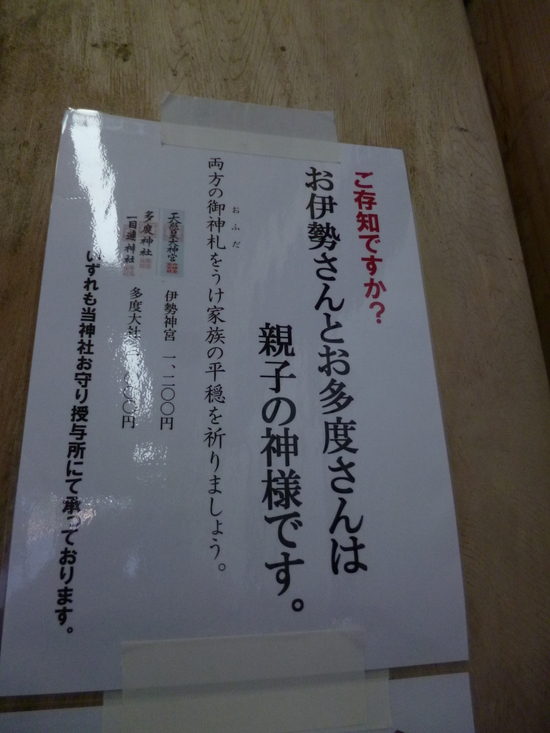 ご存知ですか?
お伊勢さんとお多度さんは
親子の神様です。
両方の御神札をうけ家族の平穏を祈りましょう。
おふだ
天照皇大神宮
伊勢神宮 一、二〇〇円
多度神社
一目連神社
多度大社
〇〇円
いずれも当神社お守り授与所にて承っております。